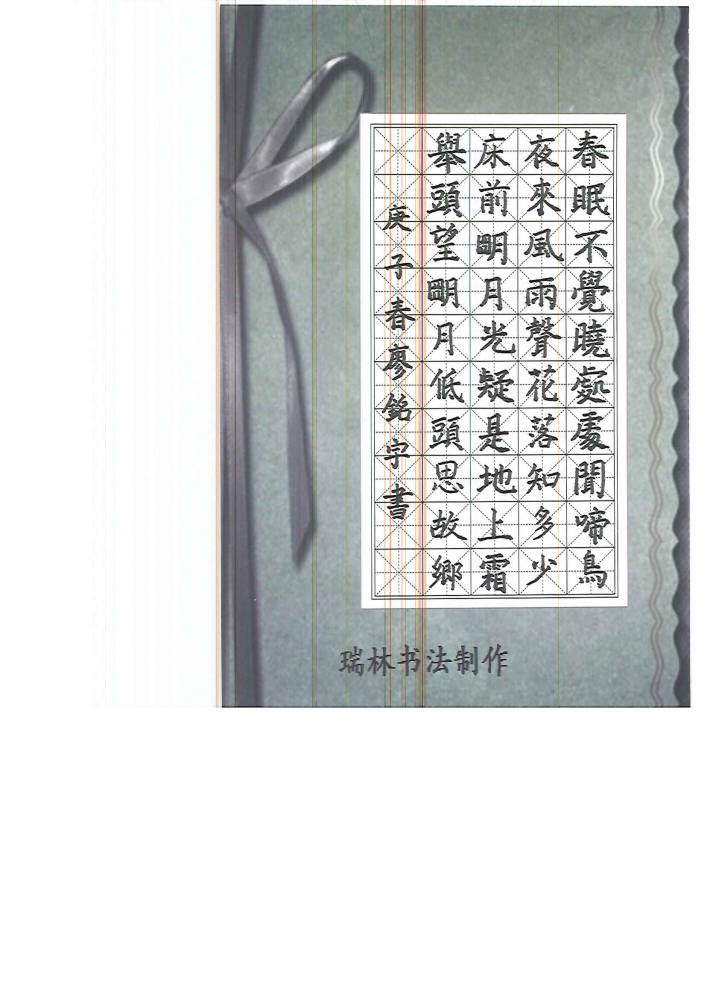 春眠不覺曉處處聞啼鳥
夜來風雨聲花落知多少
床前明月光疑是地上霜
舉頭望明月低頭思故鄉
庚子春廖銘字書
瑞林书法制作